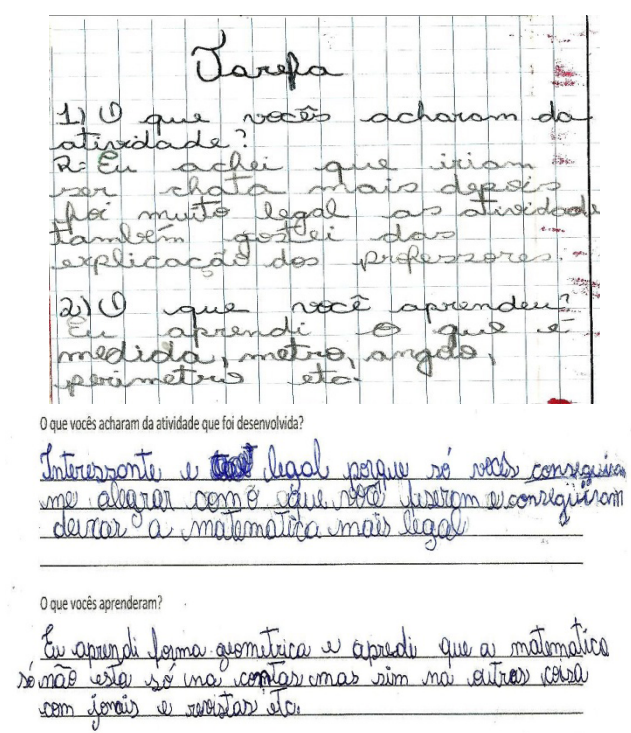 Tarefa
1) O que vocês acharam da
atividade?
R: Eu achei que iriam
ser chata mais depois
foi muito legal as atividade
também gostei das
explicação dos professores.
2) O que você aprendeu?
Eu aprendi o que é
medida, metro, angdo,
perimetro etc.
O que vocês acharam da atividade que foi desenvolvida?
Interessante e legal porque só vocês conseguiram
me alegrar com o que você fizeram e conseguiram
deixar a matematica mais legal
O que vocês aprenderam?
Eu aprendi forma geometrica e apredi que a matematica
só não esta só na contas mas sim na outras coisa
com jonais e revistas etc.